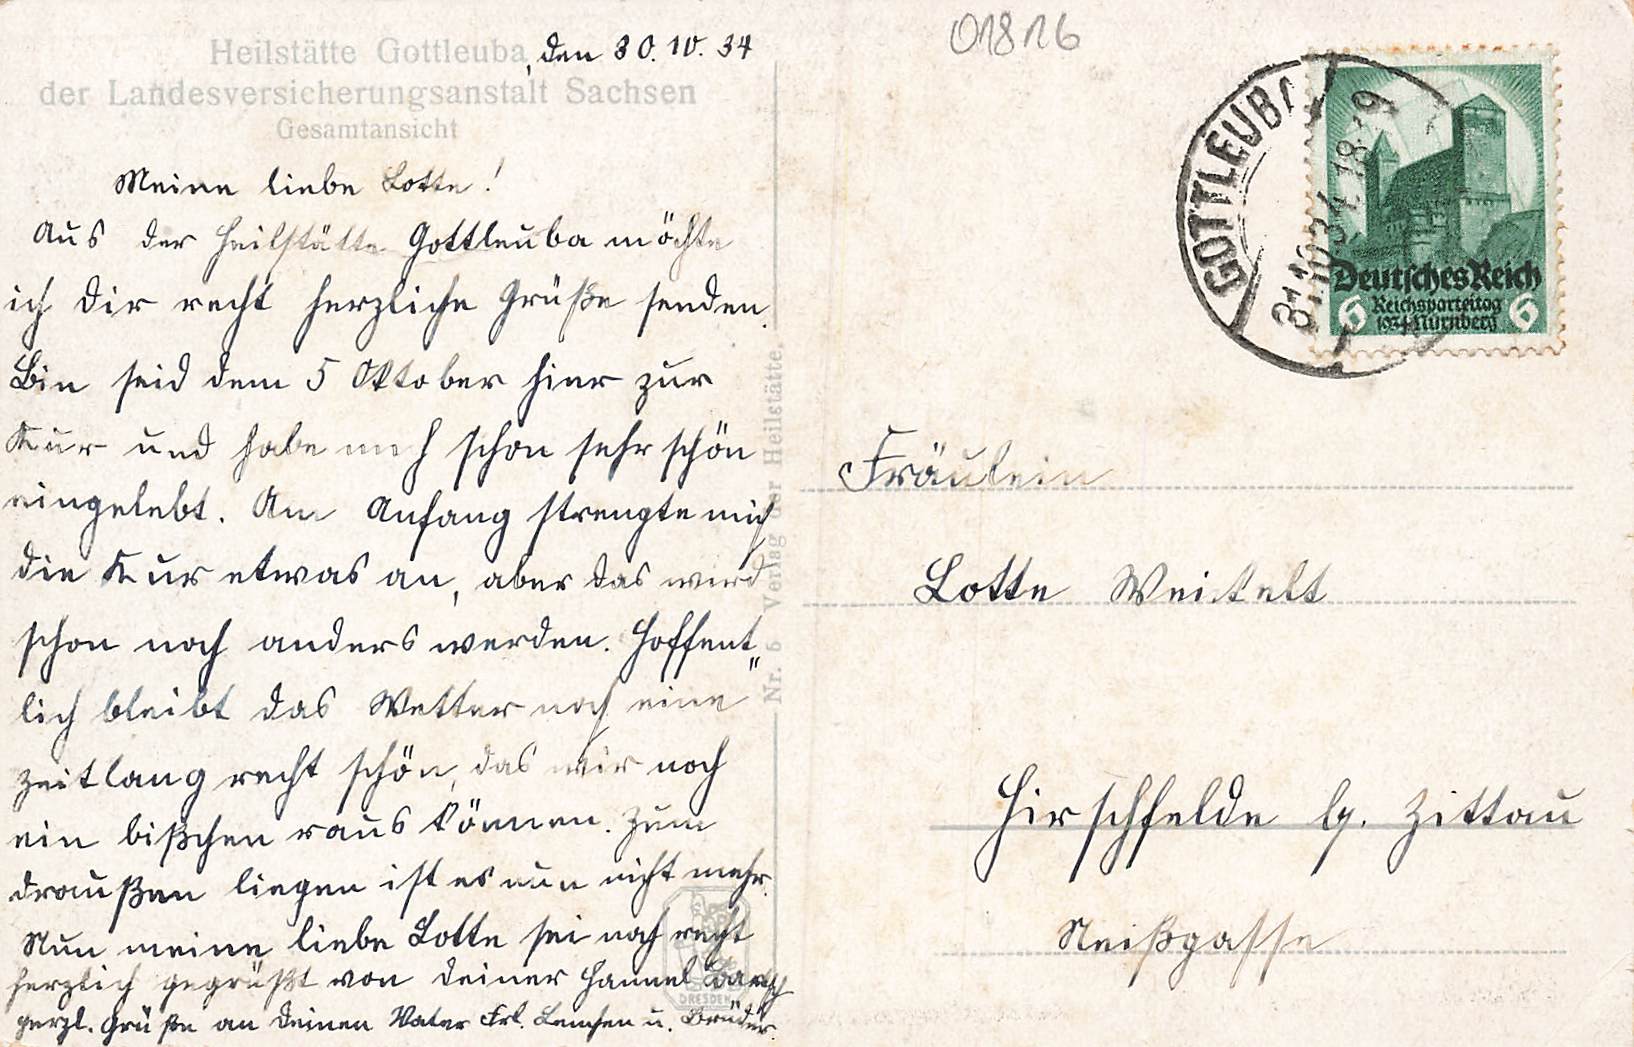 Heilstätte Gottleuba, den 30.10.34
der Landesversicherungsanstalt Sachsen
Gesamtansicht
Meine liebe Lotte!
Aus der Heilstätte Gottleuba möchte
ich Dir recht herzliche Grüße senden.
Bin seid dem 5 Oktober hier zur
Kur und habe mich schon sehr schön
eingelebt. Am Anfang strengte mich
die Kur etwas an, aber das wird
schon noch anders werden. Hoffent"
lich bleibt das Wetter noch eine
zeitlang recht schön, das wir noch
ein bißchen raus können. Zum
draußen liegen ist es nun nicht mehr.
Nun meine liebe Lotte sei noch recht
herzlich gegrüßt von Deiner Hannel
herzl. Grüße an Deinen Vater Frl. u. Brüder.
Nr. 6 Verlag der Heilstätte.
DRESDEN
01816
GOTTLEUBA
31.10.34.18-19
Deutsches Reich
Reichsparteitag
1934 Nürnberg
6 6
Fräulein
Lotte
Hirschfelde b. Zittau
Neißgasse